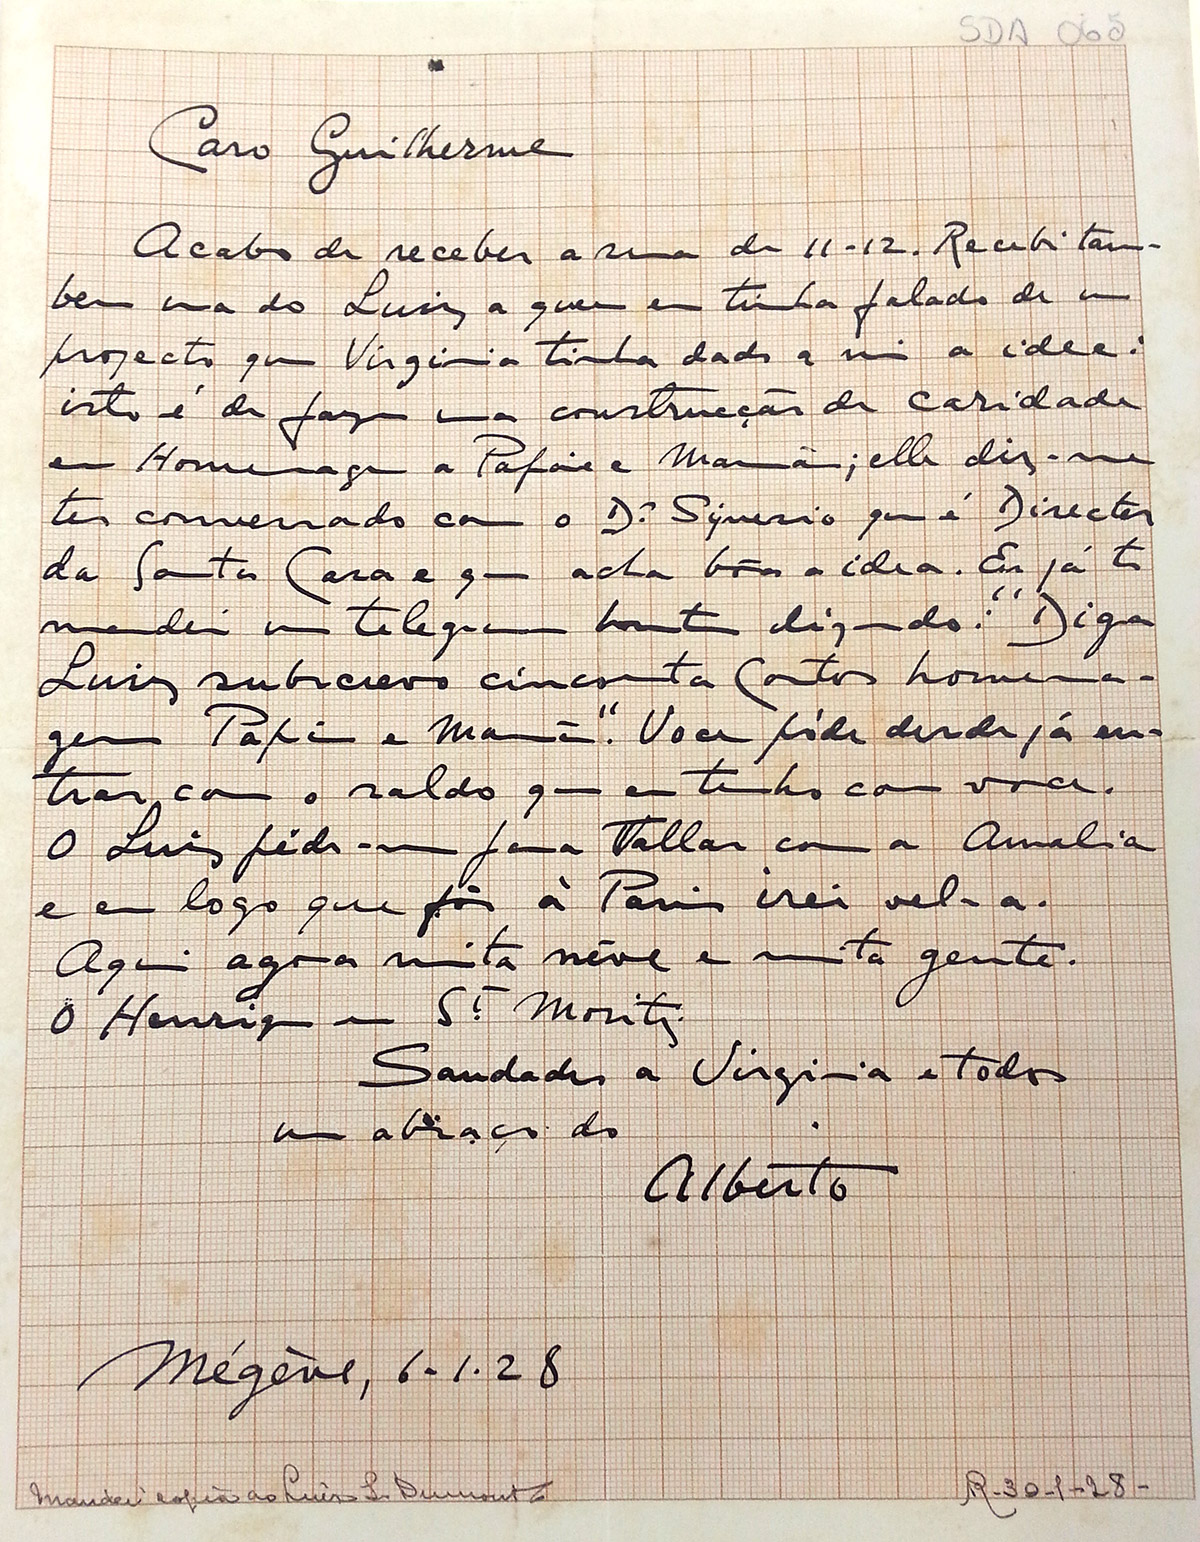 SDA 065
Caro Guilherme
Acabo de receber a sua de 11-12. Recebi tam-
bem uma do Luiz a quem eu tinha falado de um
projecto que Virginia tinha dado a mi a idea:
isto é de fazer uma construcção de caridade
em Homenagem a Papae e Mamã; elle diz-me
ter conversado com o Dr. Synesio que é Director
da Santa Casa e que acha bôa a idea. Eu já te
mandei um telegrama hontem dizendo: "Diga
Luiz subscrevo cincoenta Contos homena-
gem Papai e Mamã". Voce póde desde já en-
trar com o saldo que eu tenho com voce.
O Luiz péde-me para fallar com a Amalia
e eu logo que fôr à Paris irei vel-a.
Aqui agora muita néve e muita gente.
O Henrique em St Moritz.
Saudades a Virginia e todos
um abraço do
Alberto
Mégève, 6-1-28
Mandei copia ao Luis S. Dumont
R-30-1-28-